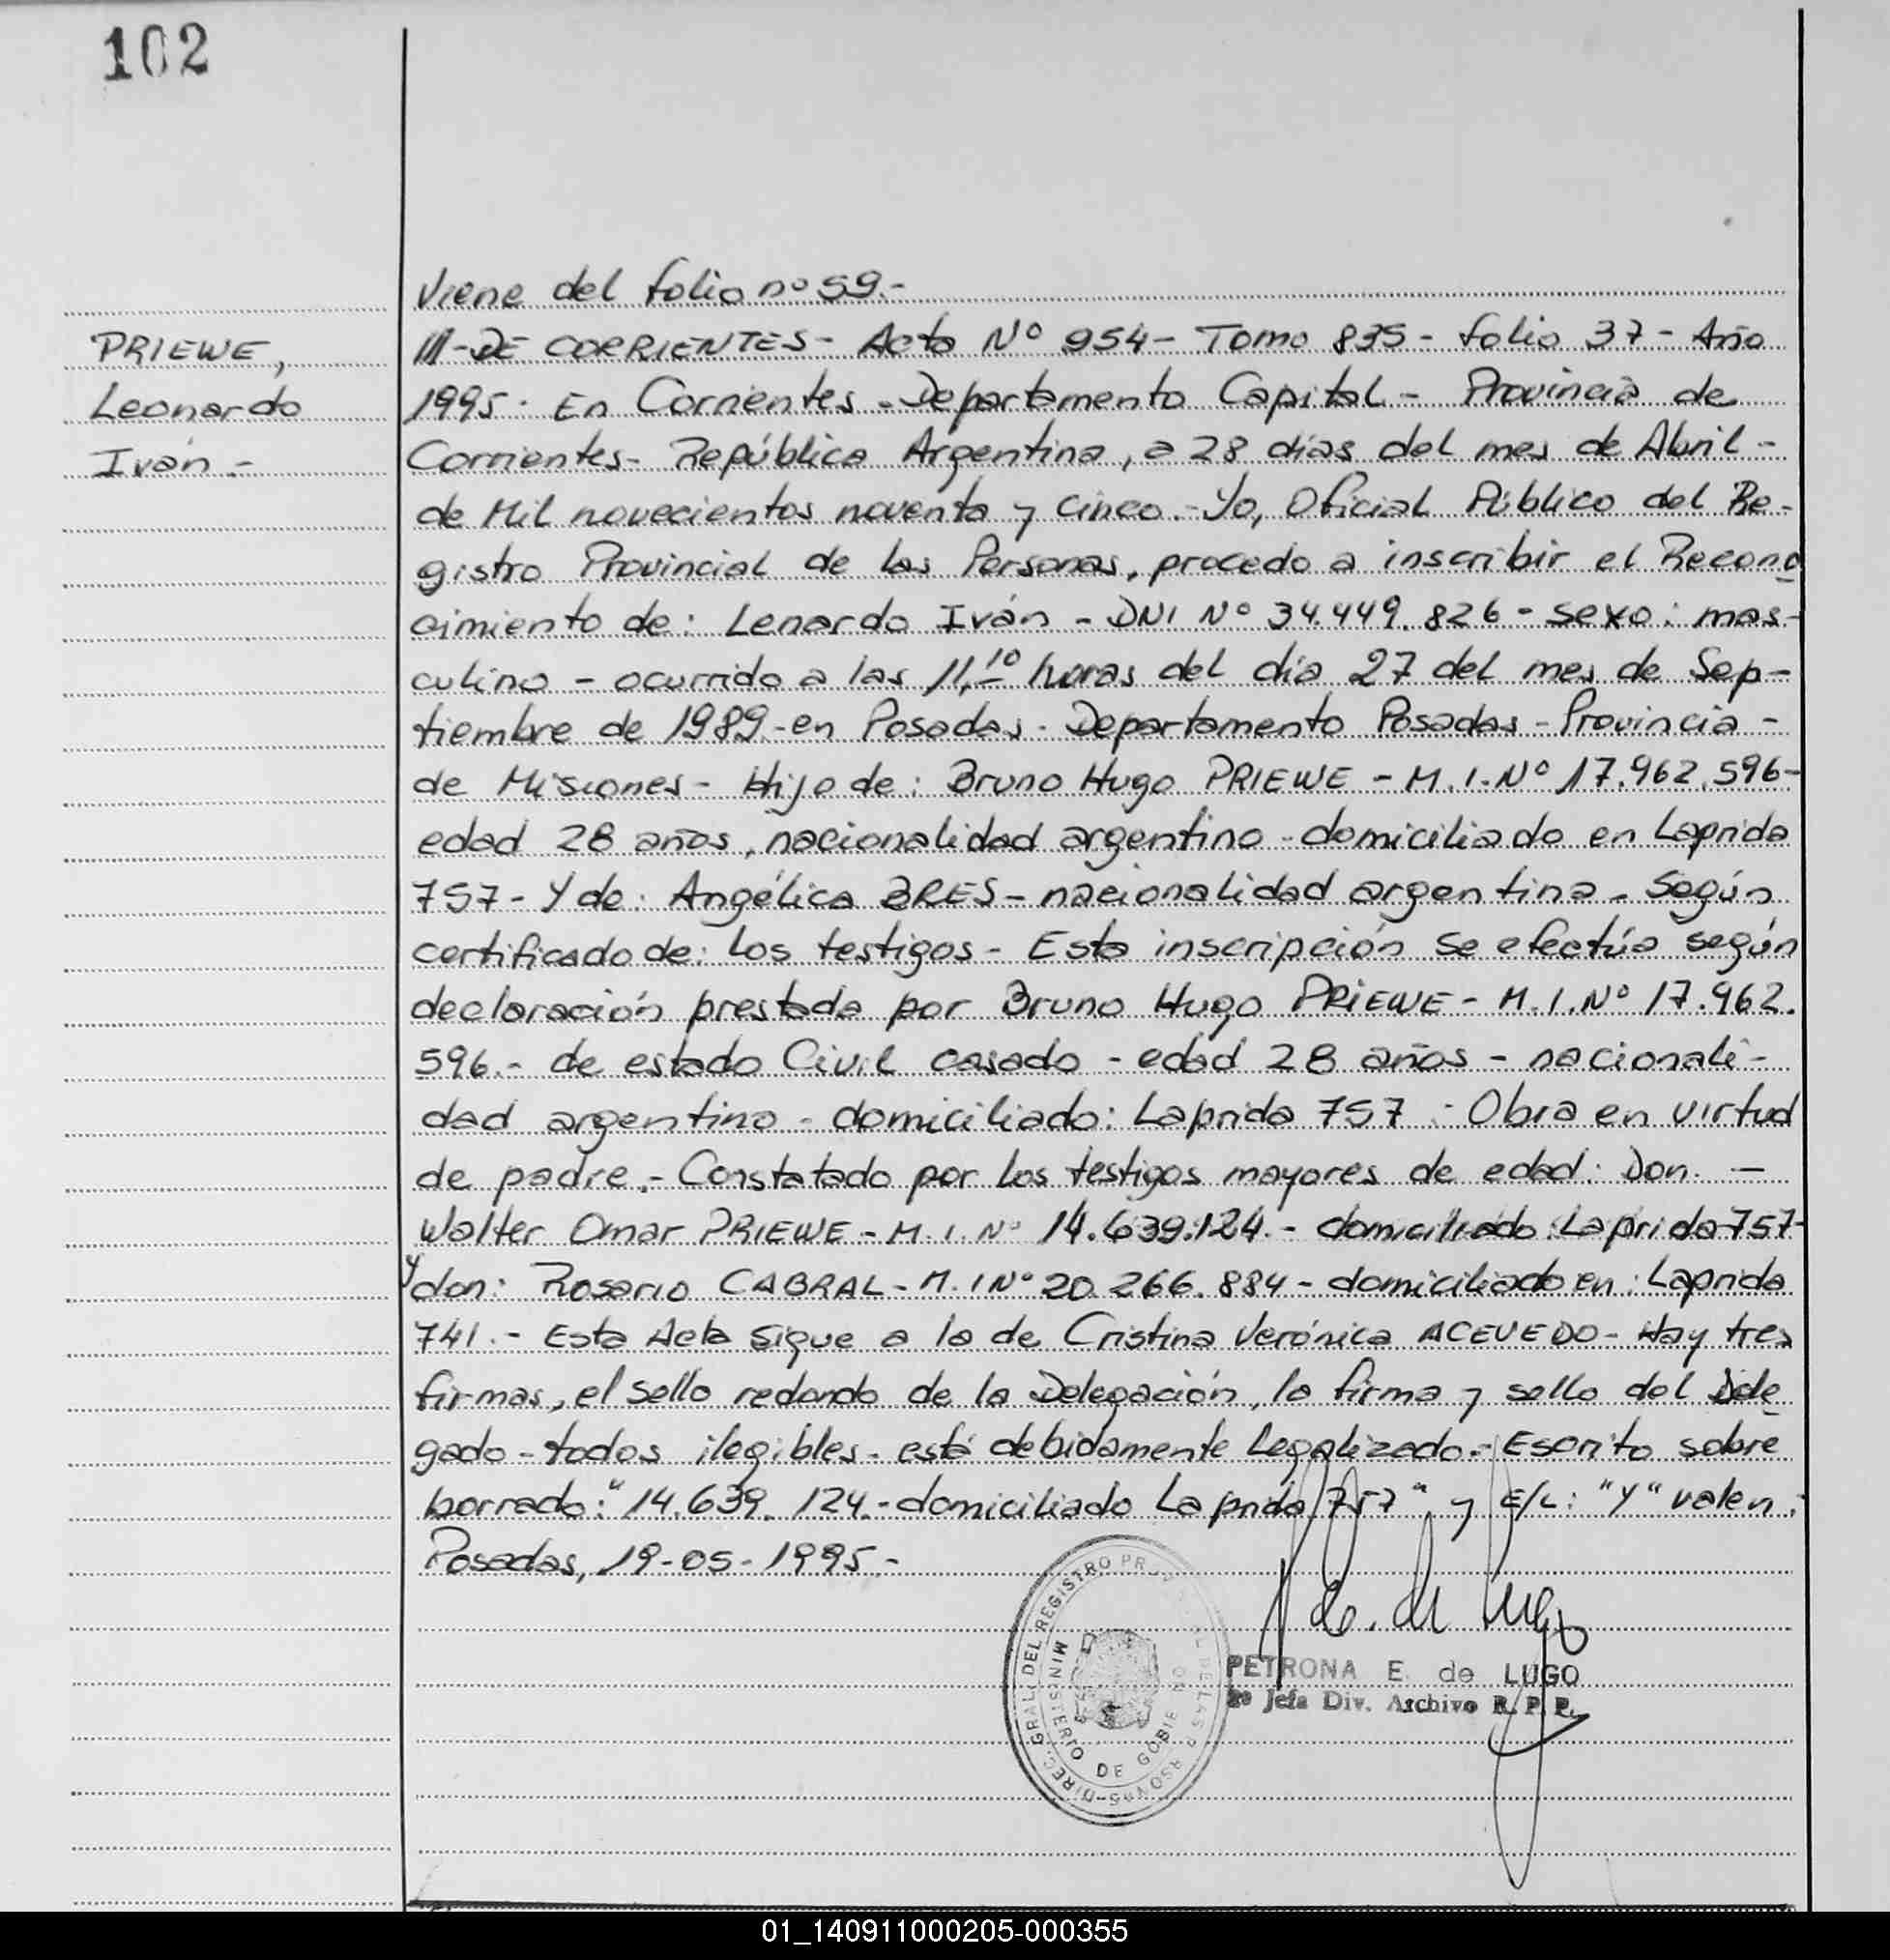 102
Viene del folio nº 59.-
PRIEWE,
Leonardo
Iván -
III-DE CORRIENTES- Acta Nº 954- Tomo 835- folio 37- Año
1995. En Corrientes -Departamento Capital- Provincia de
Corrientes- República Argentina, a 28 días del mes de Abril-
de Mil novecientos noventa y cinco.- Yo, Oficial Público del Re-
gistro Provincial de las Personas, procedo a inscribir el Recono
cimiento de: Lenardo Iván - DNI Nº 34.449.826 - sexo: mas-
culino - ocurrido a las 11,10 horas del día 27 del mes de Sep-
tiembre de 1989.-en Posadas. Departamento Posadas-Provincia-
de Misiones- Hijo de: Bruno Hugo PRIEWE - M.I.Nº 17.962.596-
edad 28 años, nacionalidad argentino-domiciliado en Laprida
757- Y de: Angélica BRES- nacionalidad argentina. Según
certificado de: los testigos- Esta inscripción se efectúa según
declaración prestada por Bruno Hugo PRIEWE- M.I.Nº 17.962.
596.- de estado Civil casado - edad 28 años - nacionali-
dad argentino - domiciliado: Laprida 757.- Obra en virtud
de padre.- Constatado por los testigos mayores de edad: Don. -
Walter Omar PRIEWE - M.I. Nº 14.639.124.- domiciliado: Laprida 757-
y don: Rosario CABRAL- M.I Nº 20.266.884- domiciliado en: Laprida
741.- Esta Acta sigue a la de Cristina Verónica ACEVEDO- Hay tres
firmas, el sello redondo de la Delegación, la firma y sello del Dele
gado-todos ilegibles- está debidamente legalizado.- Escrito sobre
borrado: "14.639.124.-domiciliado Laprida 757" y E/L: "Y" valen.-
Posadas, 19-05-1995.-
DIREC. GRAL. DEL REGISTRO PROVINCIAL DE LAS PERSONAS
MINISTERIO DE GOBIERNO
de Lugo
PETRONA E. de LUGO
2º Jefa Div. Archivo R. P. P.
01_140911000205-000355